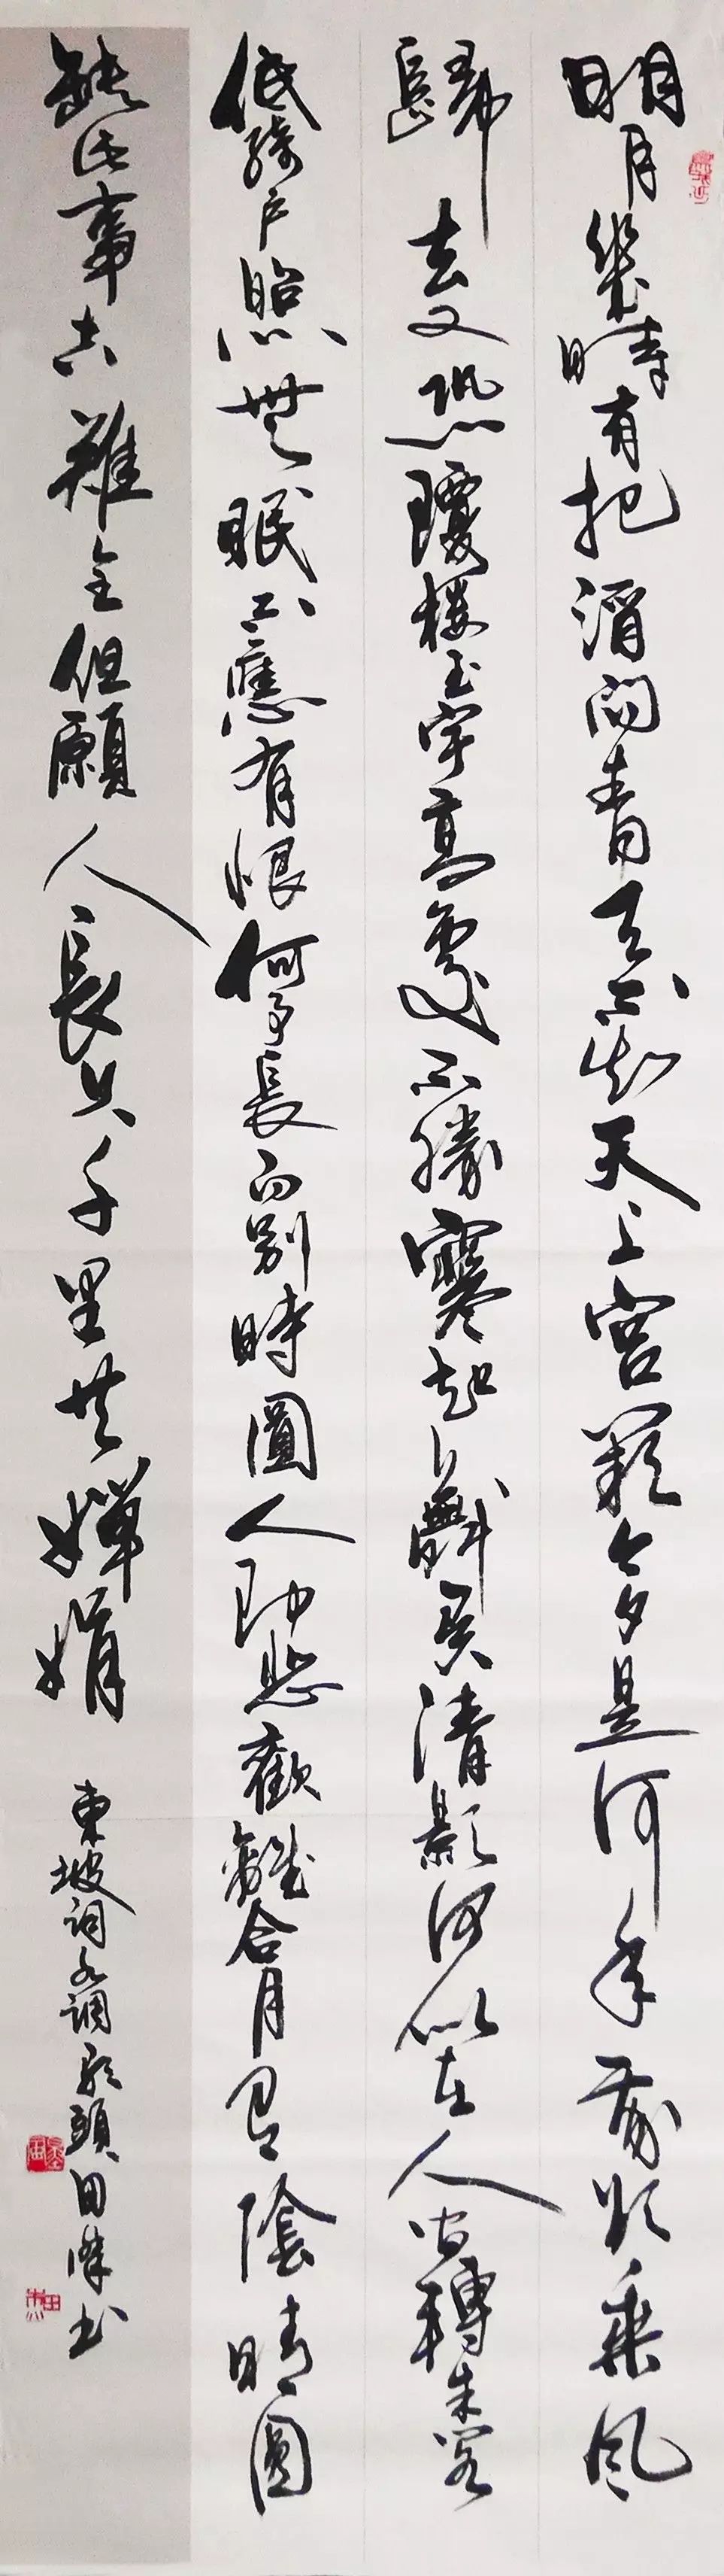 明月幾時有把酒問青天不知天上宮闕今夕是何年我欲乘風
歸去又恐瓊樓玉宇高處不勝寒起舞弄清影何似在人間轉朱閣
低綺戶照無眠不應有恨何事長向別時圓人有悲歡離合月有陰晴圓
缺此事古難全但願人長久千里共嬋娟
東坡詞水調歌頭田傑書